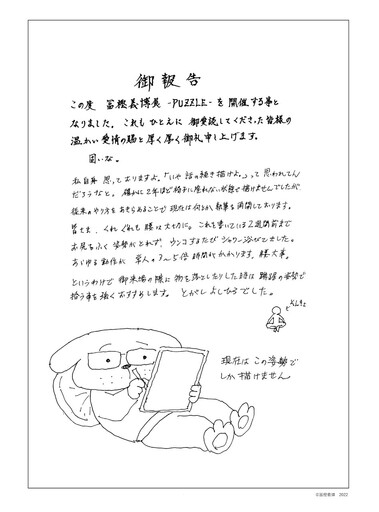 御報告
この度 冨樫義博展 -PUZZLE- を 開催する事と
なりました。これも ひとえに 御愛読してくださった皆様の
温かい愛情の賜と厚く厚く御礼申し上げます。
固いな。
私自身 思っておりますよ。「いや 話の続き描けよ。」って 思われてん
だろうなと。確かに2年ほど椅子に座れない状態で描けませんでしたが、
従来のやり方をあきらめることで 現在は何とか執筆を再開しております。
皆さま、くれぐれも 腰は大切に。これを書いている2週間前まで
お尻をふく姿勢がとれず、ウンコするたびシャワー浴びてました。
あらゆる動作が 常人の3〜5倍時間がかかります。腰 大事。
というわけで 御来場の際に 物を落としたりした時は 蹲踞の姿勢で
拾う事を強くおすすめします。とがし よしひろでした。
そんきょ
現在は この姿勢で
しか描けません
©冨樫義博 2022